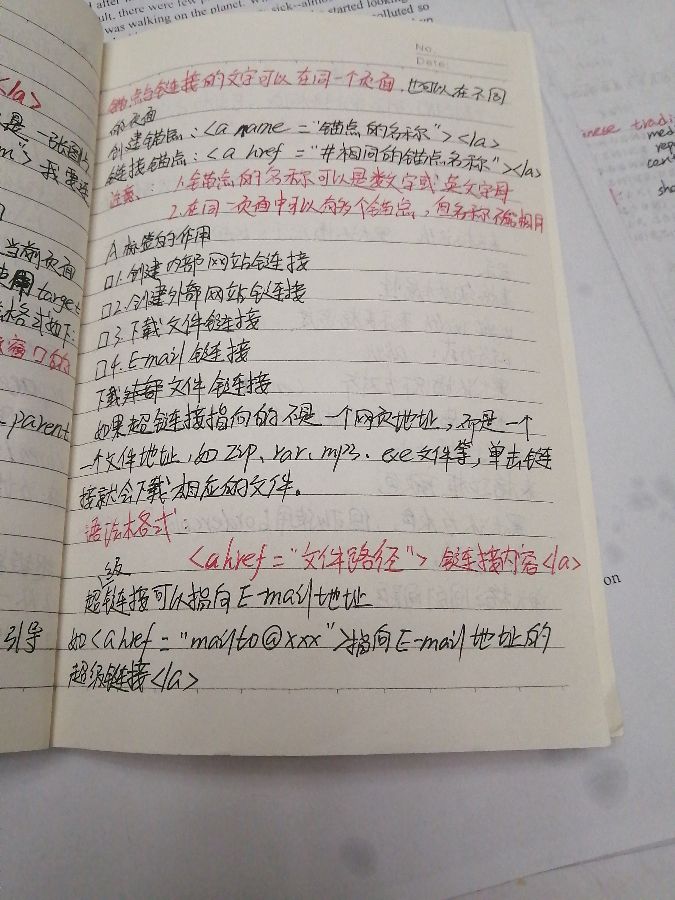 ult, there were few p
was walking on the planet.
sick--
started looking
polluted so
No.
Date:
锚点与链接的文字可以在同一个页面，也可以在不同
的页面
创建锚点：<a name="锚点的名称"></a>
链接锚点：<a href="#相同的锚点名称"></a>
注意：1.锚点的名称可以是数字或英文字母
2.在同一页面中可以有多个锚点，但名称不能相同
A标签的作用
口1.创建内部网站链接
口2.创建外部网站链接
口3.下载文件链接
口4.E-mail链接
下载文件链接
如果超链接指向的不是一个网页地址，而是一个
一个文件地址，如zip、rar、mp3、exe文件等，单击链
接就会下载相应的文件。
语法格式：
<a href="文件路径">链接内容</a>
级
超链接可以指向E-mail地址
如<a href="mailto@xxx">指向E-mail地址的
超级链接</a>
</a>
是一张图片
m">我要还
当前页面
使用target
格式如下:
窗口的
parent
引导
inese tradi
med
rep
cen
sho
on